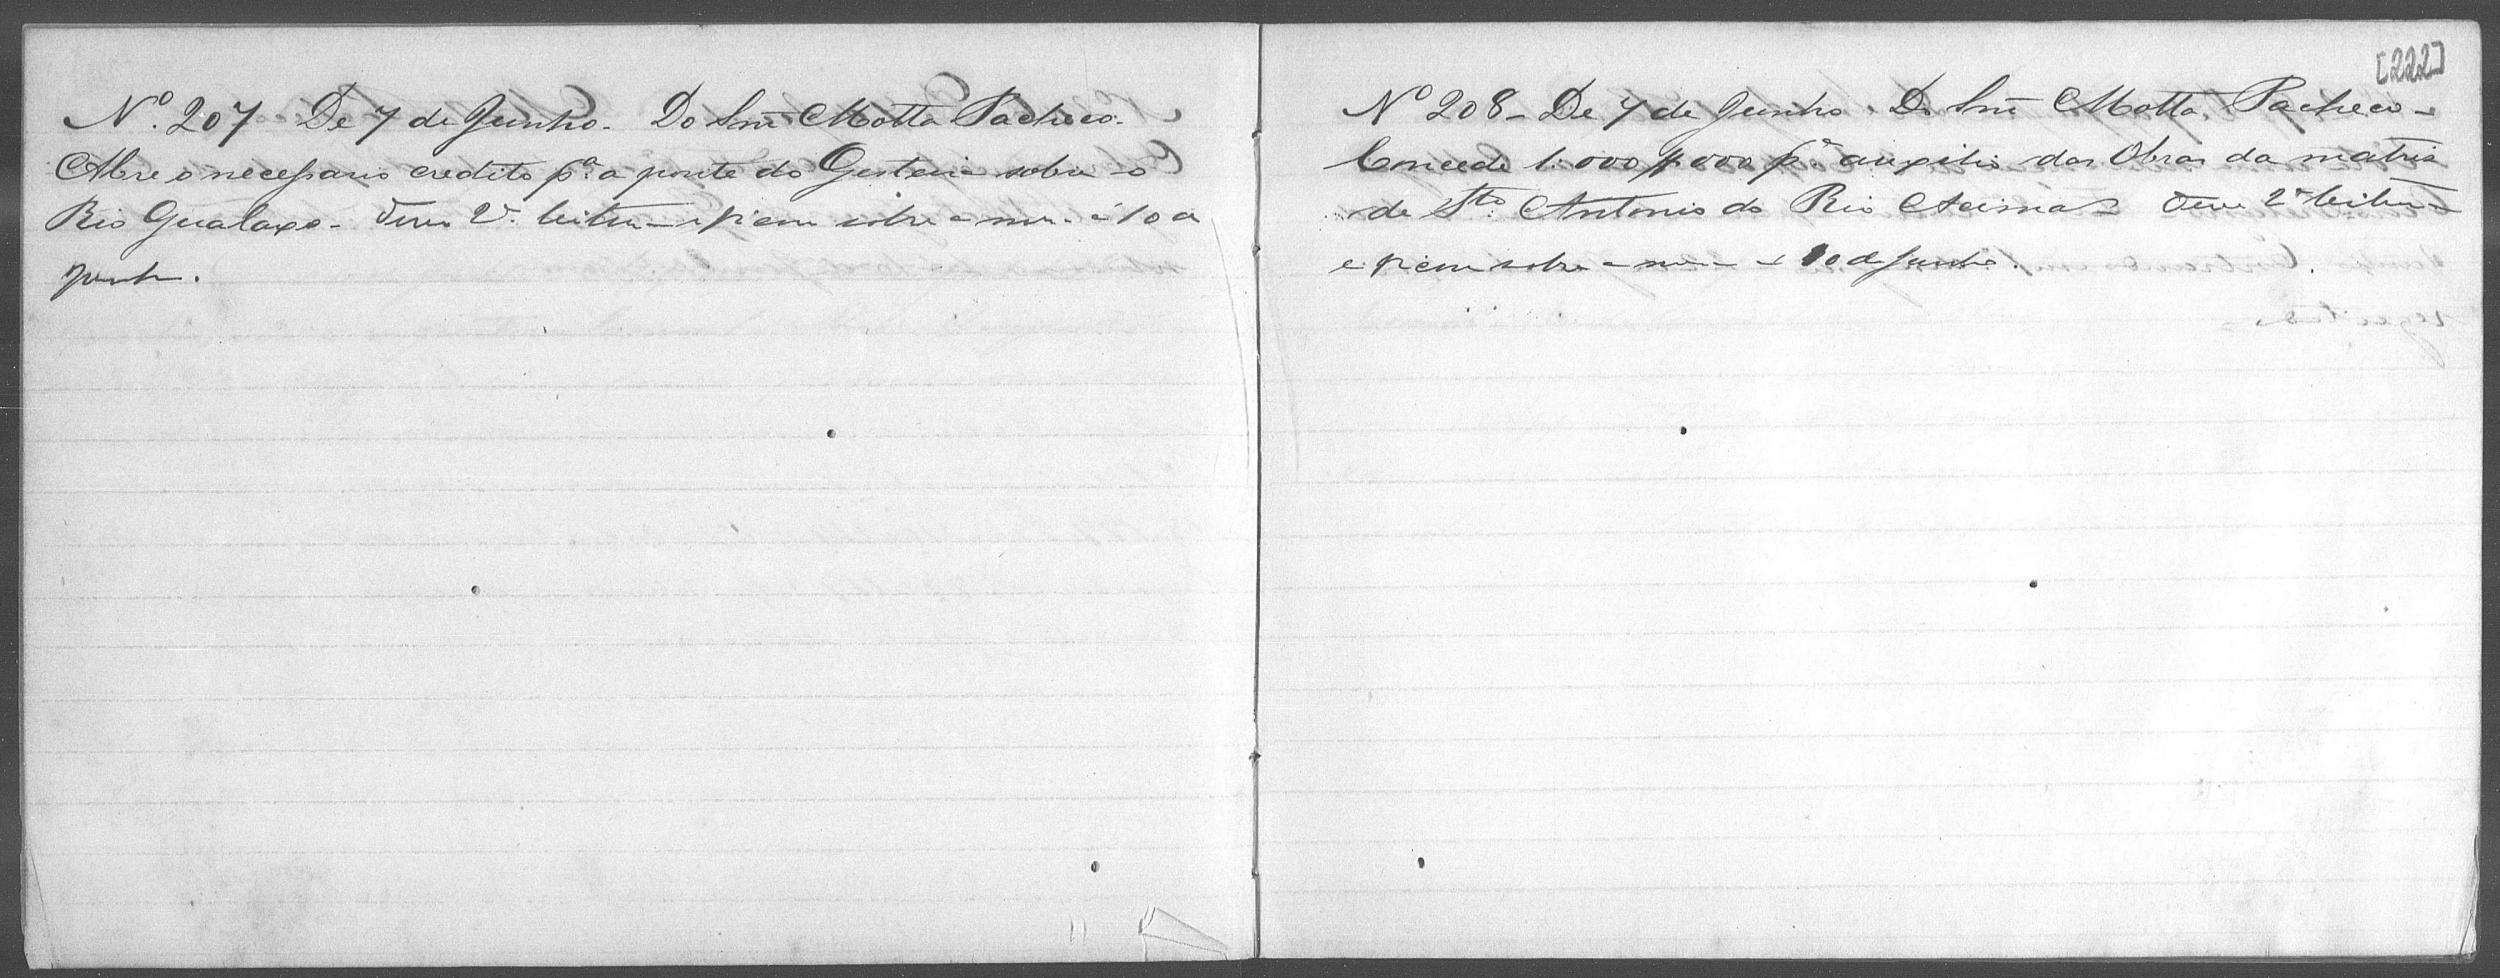 Nº. 207 De 7 de Junho. Do Snr. Motta Pacheco.
Abre o necessario credito pª. a ponte do Gesteira sobre o
Rio Gualaxo. Teve 2ª. leitura e ficou sobre a mesa a 10 de
Junho.
[222]
Nº 208 - De 7 de Junho. Do Snr. Motta Pacheco -
Concede 1:000$000 pª auxilio das Obras da matriz
de Sto. Antonio do Rio Acima. Teve 2ª leitura
e ficou sobre a mesa a 10 de Junho.